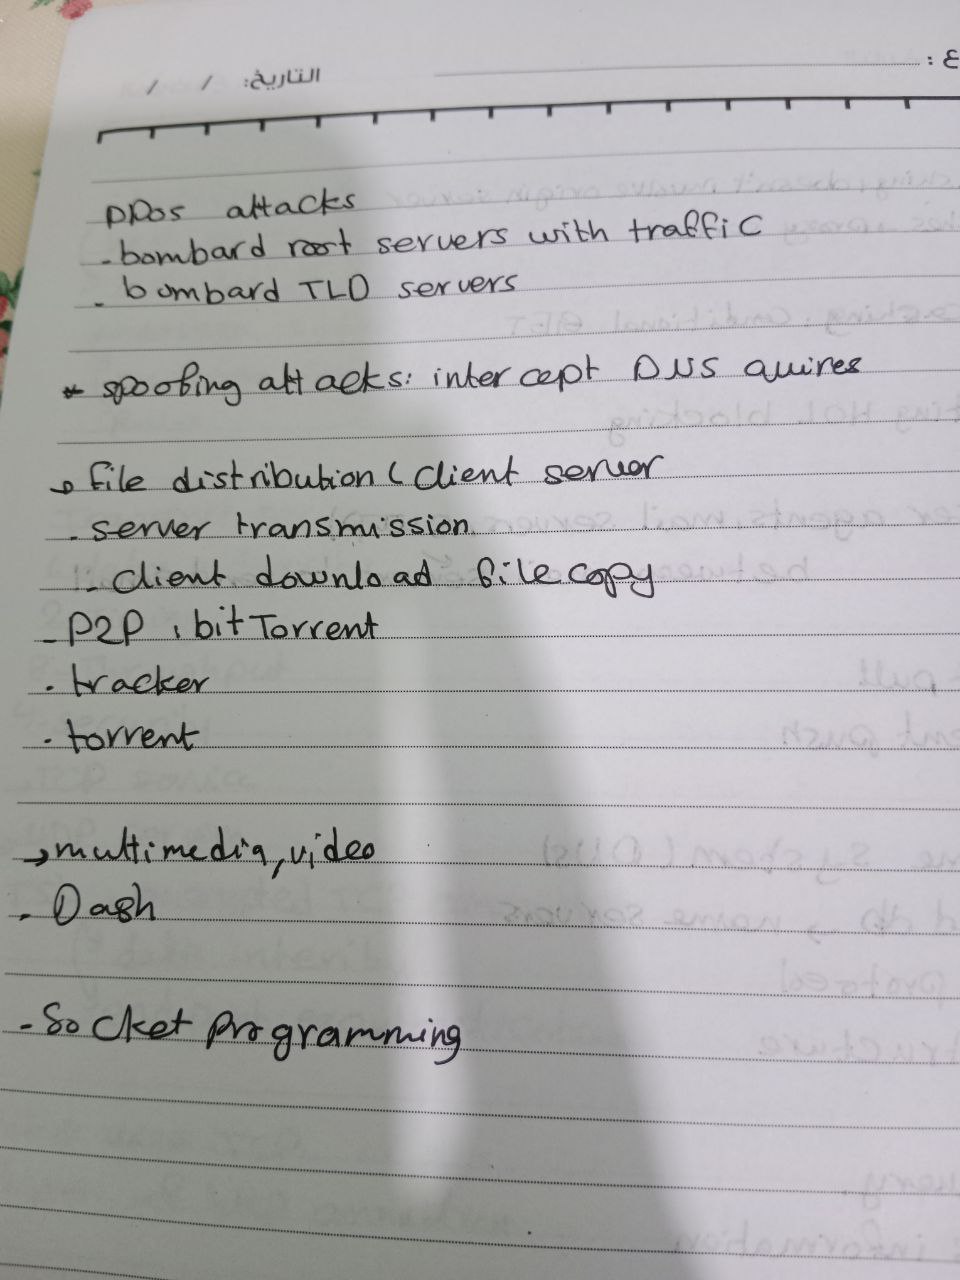 التاريخ: / /
ع :
DDos attacks
- bombard root servers with traffic
- bombard TLD servers
* spoofing attacks: intercept DNS quires
→ file distribution ( Client server
- server transmission
- Client download file copy
- P2P : bitTorrent
. tracker
. torrent
→ multimedia, video
. Dash
- Socket programming